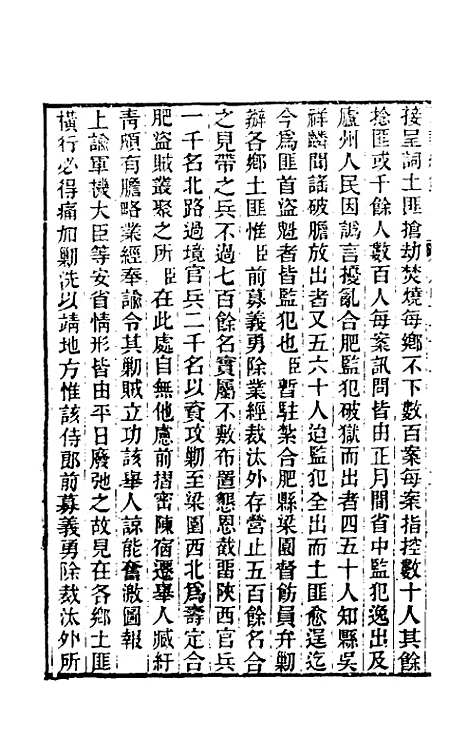 接呈詞土匪搶劫焚燒每鄉不下數百案每案指控數十人其餘
捻匪或千餘人數百人每案訊問皆由正月間省中監犯逸出及
廬州人民因訛言擾亂合肥監犯破獄而出者四五十人知縣吳
祥麟聞謠破膽放出者又五六十人迨監犯全出而土匪愈逞迄
今為匪首盜魁者皆監犯也臣暫駐紮合肥縣梁園督飭員弁勦
辦各鄉土匪惟臣前募義勇除業經裁汰外存營止五百餘名合
之見帶之兵不過七百餘名實屬不敷布置懇恩截留陝西官兵
一千名北路過境官兵二千名以資攻勦至梁園西北為壽定合
肥盜賊叢聚之所臣在此處自無他慮前摺密陳宿遷舉人臧紆
青頗有膽略業經奉諭令其勦賊立功該舉人諒能奮激圖報
上諭軍機大臣等安省情形皆由平日廢弛之故見在各鄉土匪
橫行必得痛加勦洗以靖地方惟該侍郎前募義勇除裁汰外所